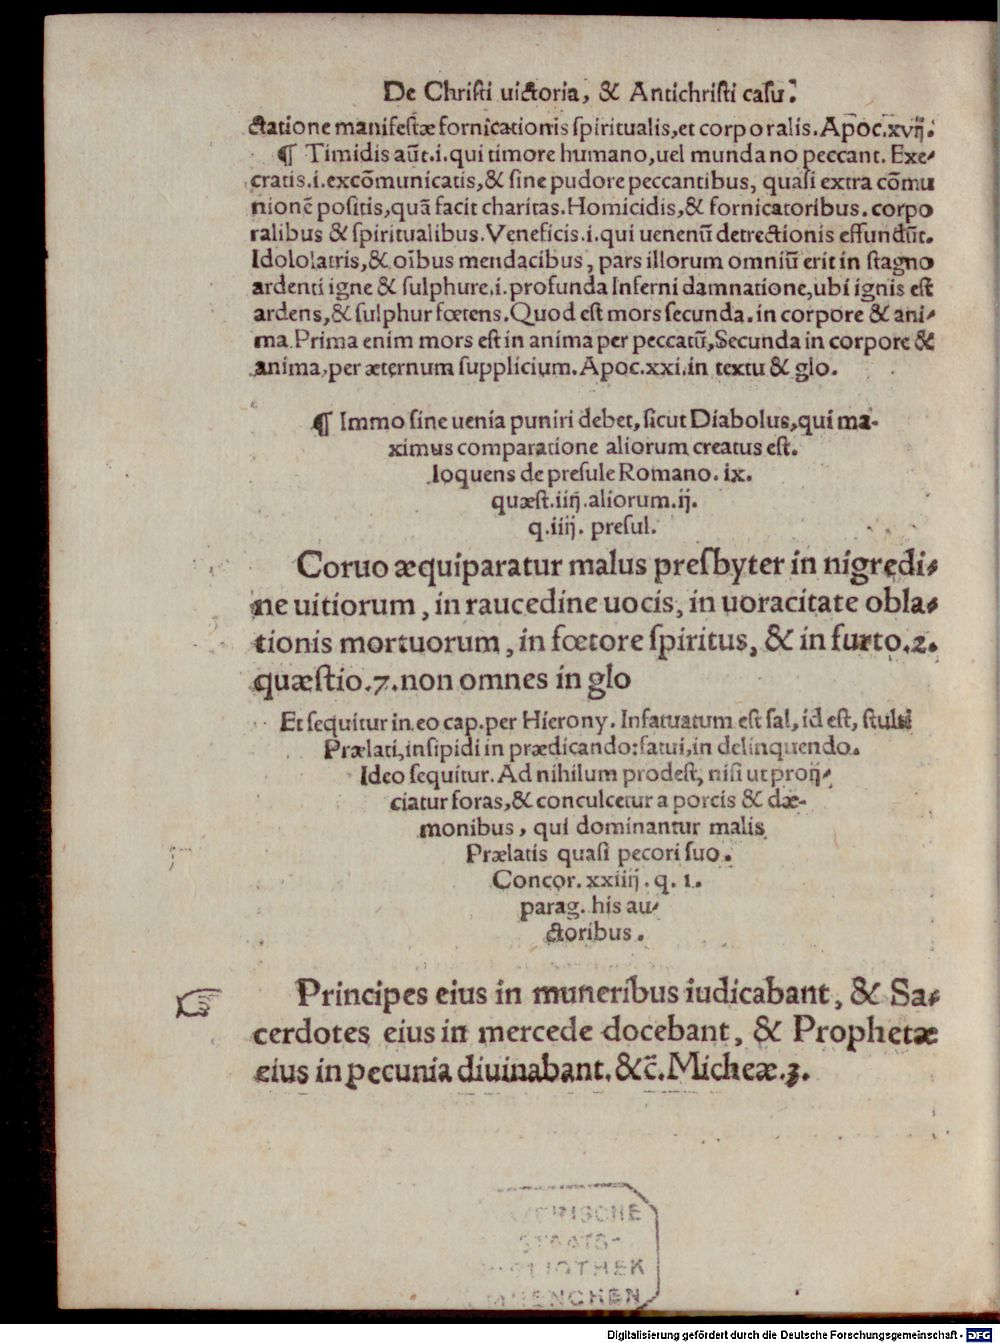 De Christi uictoria, & Antichristi casu.
ctatione manifestæ fornicationis spiritualis, et corporalis. Apoc. xvij.
¶ Timidis aūt .i. qui timore humano, uel mundano peccant. Exe-
cratis .i. excōmunicatis, & sine pudore peccantibus, quasi extra cōmu
nionē positis, quā facit charitas. Homicidis, & fornicatoribus. corpo
ralibus & spiritualibus. Veneficis .i. qui uenenū detrectionis effundūt.
Idololatris, & oībus mendacibus, pars illorum omniū erit in stagno
ardenti igne & sulphure .i. profunda Inferni damnatione, ubi ignis est
ardens, & sulphur fœtens. Quod est mors secunda. in corpore & ani-
ma. Prima enim mors est in anima per peccatū, Secunda in corpore &
anima, per æternum supplicium. Apoc. xxi. in textu & glo.
¶ Immo sine uenia puniri debet, sicut Diabolus, qui ma-
ximus comparatione aliorum creatus est.
loquens de presule Romano. ix.
quæst. iiij. aliorum. ij.
q. iiij. presul.
Coruo æquiparatur malus presbyter in nigredi-
ne uitiorum, in raucedine uocis, in uoracitate obla-
tionis mortuorum, in fœtore spiritus, & in furto. 2.
quæstio. 7. non omnes in glo
Et sequitur in eo cap. per Hierony. Infatuatum est sal, id est, stulti
Prælati, insipidi in prædicando: fatui, in delinquendo.
Ideo sequitur. Ad nihilum prodest, nisi ut proij-
ciatur foras, & conculcetur a porcis & dæ-
monibus, qui dominantur malis
Prælatis quasi pecori suo.
Concor. xxiiij. q. 1.
parag. his au-
ctoribus.
Principes eius in muneribus iudicabant, & Sa-
cerdotes eius in mercede docebant, & Prophetæ
eius in pecunia diuinabant. &c̄. Micheæ. 3.
BAYERISCHE
STAATS-
BIBLIOTHEK
MUENCHEN
Digitalisierung gefördert durch die Deutsche Forschungsgemeinschaft - DFG